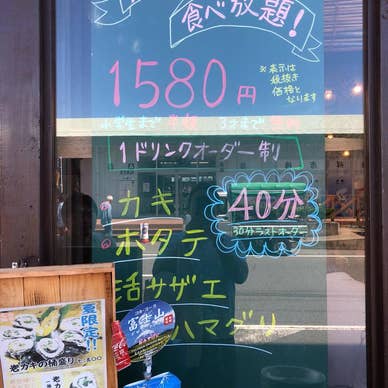 食べ放題！
1580円
※表示は
税抜き
価格と
なります
小学生まで半額 3才まで無料
1ドリンクオーダー制
カキ
40分
30分ラストオーダー
ホタテ
活サザエ
ハマグリ
夏限定!!
岩カキの桶盛り
富士山